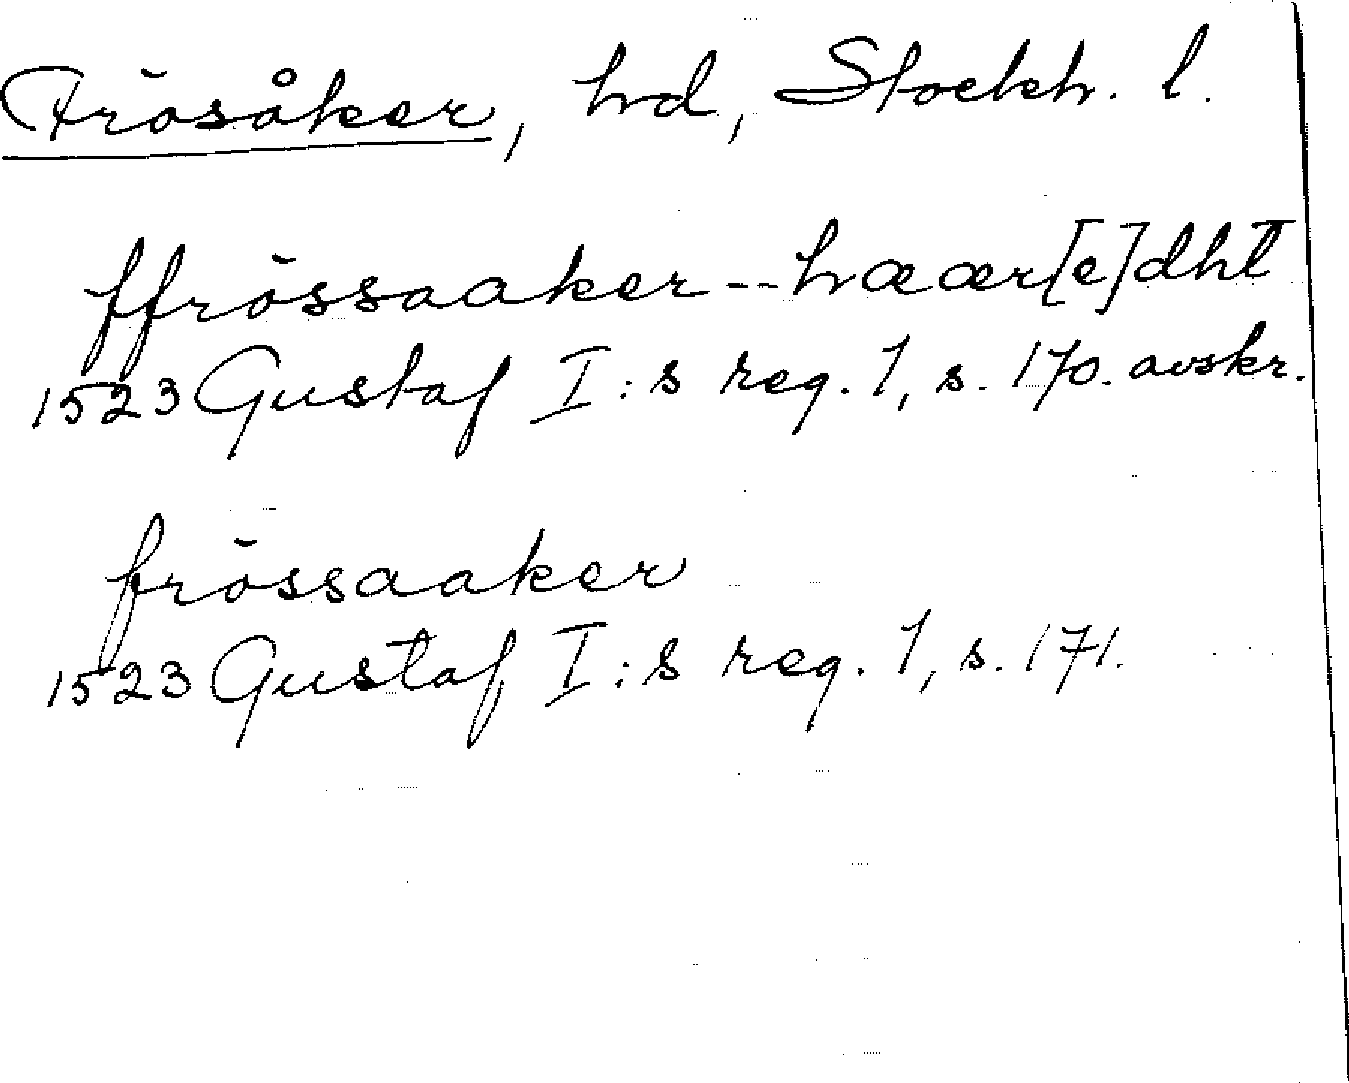 Frösåker, hd, Stockh. l.
ffrössaaker -- hæær[e]dht
1523 Gustaf I:s reg. 1, s. 170. avskr.
frössaaker
1523 Gustaf I:s reg. 1, s. 171.